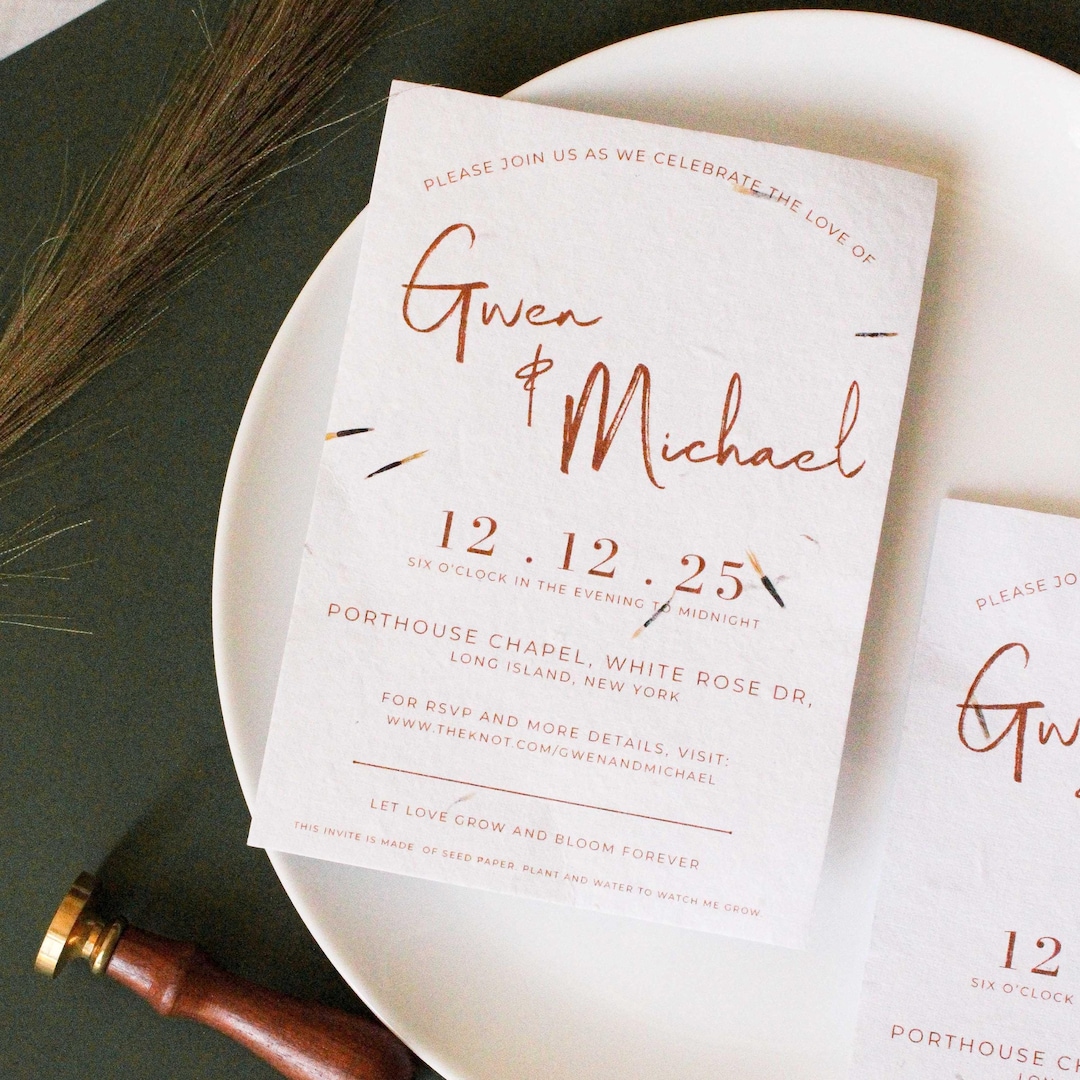 PLEASE JOIN US AS WE CELEBRATE THE LOVE OF
Gwen
&
Michael
12 . 12 . 25
SIX O'CLOCK IN THE EVENING TO MIDNIGHT
PORTHOUSE CHAPEL, WHITE ROSE DR,
LONG ISLAND, NEW YORK
FOR RSVP AND MORE DETAILS, VISIT:
WWW.THEKNOT.COM/GWENANDMICHAEL
LET LOVE GROW AND BLOOM FOREVER
THIS INVITE IS MADE OF SEED PAPER. PLANT AND WATER TO WATCH ME GROW.
PLEASE JO
Gw
12
SIX O'CLOCK
PORTHOUSE CH
LON